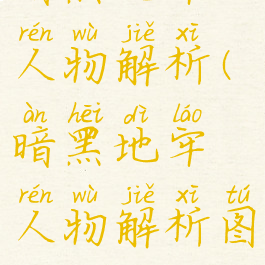 rén wù jiě xī
人物解析(
àn hēi dì láo
暗黑地牢
rén wù jiě xī tú
人物解析图